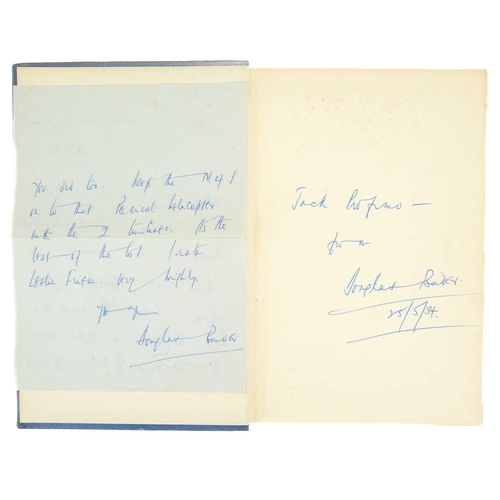 You did too. Keep the M of S
on to that Percival helicopter
with the 2 turbines. Its the
best of the lot. I rate
Leslie Frise very highly.
Douglas Bader
Jack Profumo —
from
Douglas Bader.
25/5/54.